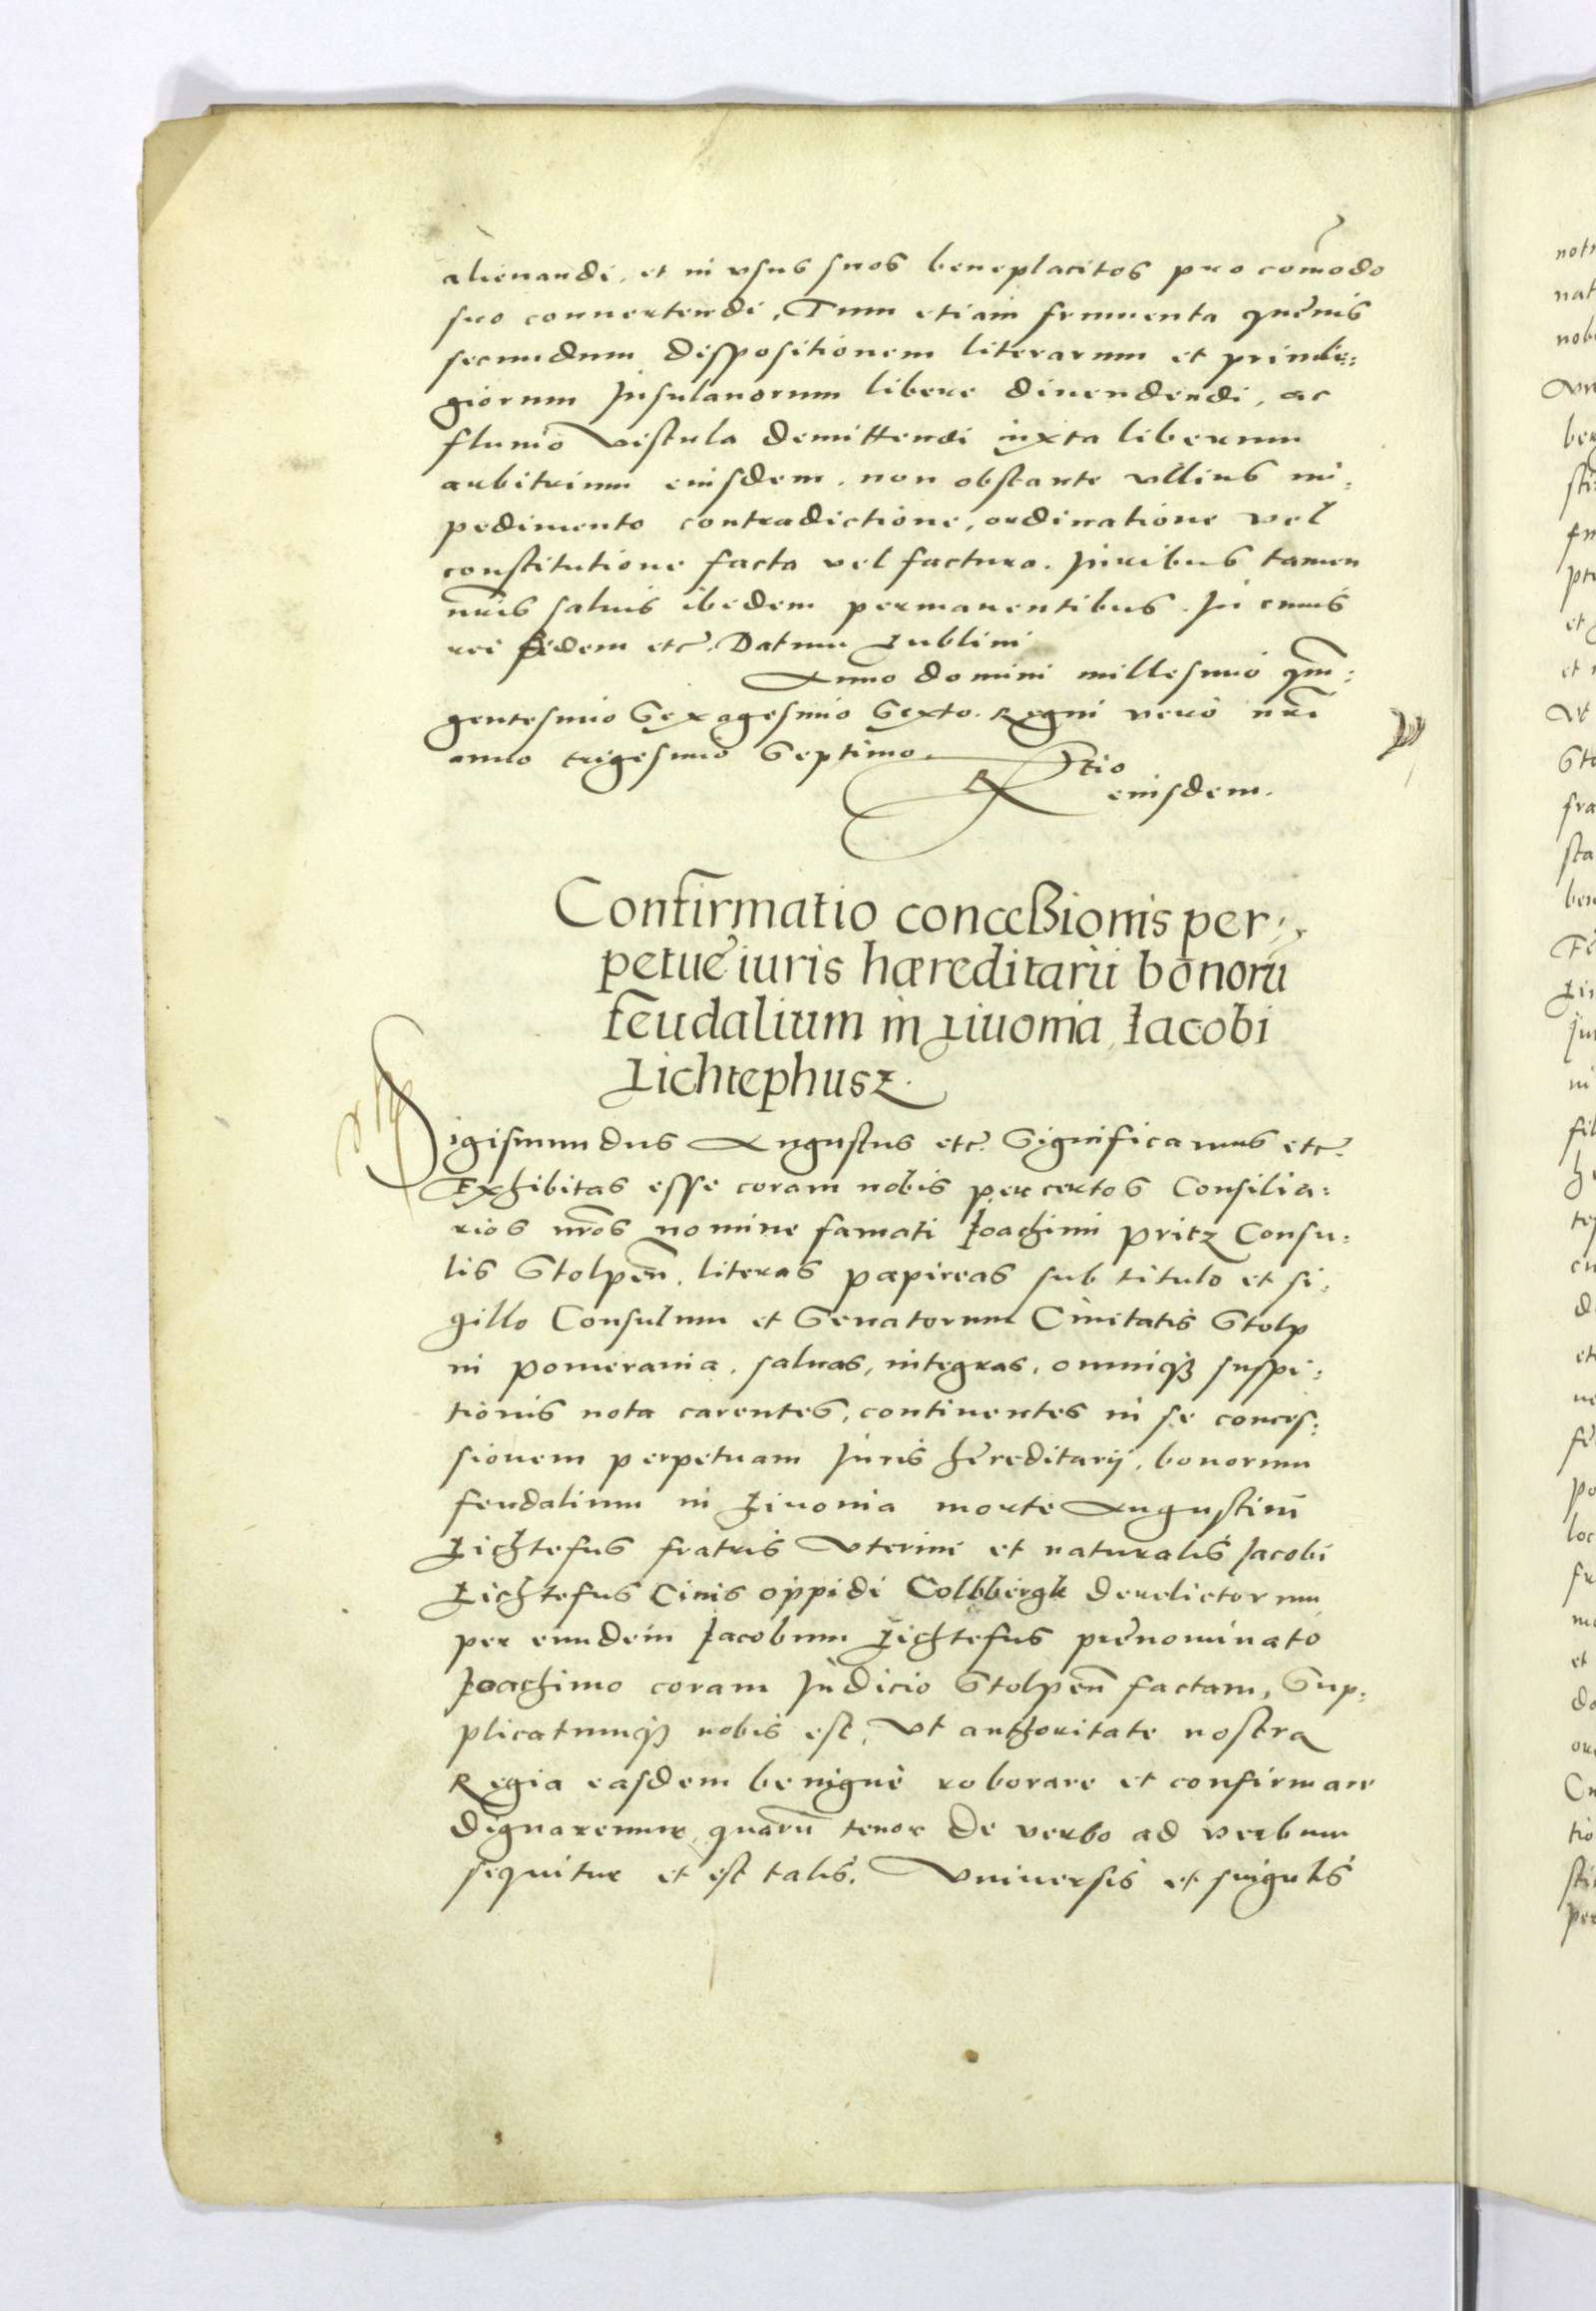 alienandi, et in vsus suos beneplacitos pro com̄odo
suo conuertendi, Tum etiam frumenta queuis
secundum dispositionem literarum et priuile:
giorum Insulanorum libere diuendendi, ac
fluuio Vistula demittendi iuxta liberum
arbitrium eiusdem, non obstante vllius im:
pedimento contradictione, ordinatione vel
constitutione facta vel factura. Iuribus tamen
nr̄is saluis ibidem permanentibus. In cuius
rei fidem etc̄. Datum Lublini
Anno domini millesimo quin:
gentesimo Sexagesimo Sexto. Regni vero nr̄i
anno trigesimo Septimo.
Rtio
eiusdem.
Confirmatio conceßionis per:
petuę iuris hæreditarii bonorū
feudalium in Liuonia Iacobi
Lichtephusz.
Sigismundus Augustus etc̄. Significamus etc̄.
Exhibitas esse coram nobis per certos Consilia:
rios nr̄os nomine famati Ioachimi Pritz Consu:
lis Stolpen̄. literas papireas sub titulo et si:
gillo Consulum et Senatorum Ciuitatis Stolp
in Pomerania, saluas, integras, omniq3 suspi:
tionis nota carentes, continentes in se conces:
sionem perpetuam Iuris hęreditarij, bonorum
feudalium in Liuonia morte Augustini
Lichtefus fratris Vterini et naturalis Iacobi
Lichtefus Ciuis oppidi Colbbergk derelictorum
per eundem Iacobum Lichtefus pręnominato
Ioachimo coram Iudicio Stolpen̄ factam, Sup:
plicatumq3 nobis est, Vt authoritate nostra
Regia easdem benigne roborare et confirmare
dignaremur, quarū tenor de verbo ad verbum
sequitur et est talis. Vniuersis et singulis